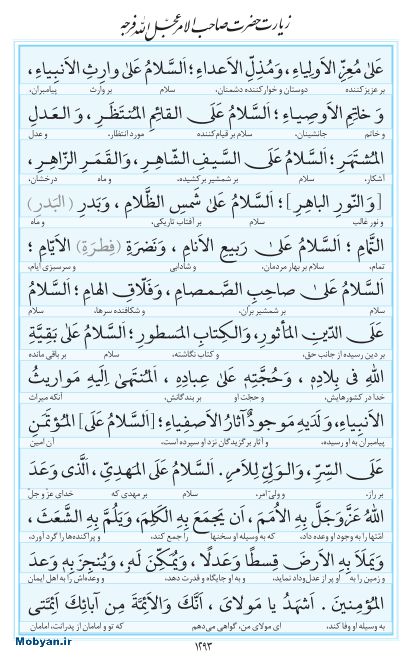 زیارت حضرت صاحب الامر عجل الله فرجه
عَلىٰ مُعِزِّ الاَولِياءِ، وَمُذِلِّ الاَعداءِ؛ اَلسَّلامُ عَلىٰ وارِثِ الاَنبِياءِ،
بر عزیز کننده دوستان و خوار کننده دشمنان، سلام بر وارث پیامبران،
وَ خاتِمِ الاَوصِياءِ؛ اَلسَّلامُ عَلَى القائِمِ المُنتَظَرِ، وَ العَدلِ
و خاتم جانشینان، سلام بر قیام کننده مورد انتظار، و عدل
المُشتَهَرِ؛ اَلسَّلامُ عَلَى السَّيفِ الشّاهِرِ، وَالقَمَرِ الزّاهِرِ،
آشکار، سلام بر شمشیر برکشیده، و ماه درخشان،
[وَ النّورِ الباهِرِ]؛ اَلسَّلامُ عَلىٰ شَمسِ الظَّلامِ، وَبَدرِ (البَدرِ)
و نور غالب سلام بر آفتاب تاریکی، و ماه
التَّمامِ؛ اَلسَّلامُ عَلىٰ رَبيعِ الاَنامِ، وَ نَضرَةِ (فِطرَةِ) الاَيّامِ؛
تمام، سلام بر بهار مردمان، و شادابی و سرسبزی ایام،
اَلسَّلامُ عَلىٰ صاحِبِ الصَّمصامِ، وَفَلّاقِ الهامِ؛ اَلسَّلامُ
سلام بر شمشیر بران، و شکافنده سرها، سلام
عَلَى الدّينِ المَأثورِ، وَالكِتابِ المَسطورِ؛ اَلسَّلامُ عَلىٰ بَقِيَّةِ
بر دین رسیده از جانب حق، و کتاب نگاشته، سلام بر باقی مانده
اللهِ فى بِلادِهِ، وَ حُجَّتِهِ عَلىٰ عِبادِهِ، اَلمُنتَهىٰ اِلَيهِ مَواريثُ
خدا در کشورهایش، و حجت او بر بندگانش، آنکه میراث
الاَنبِياءِ، وَلَدَيهِ مَوجودٌ آثارُ الاَصفِياءِ؛ [اَلسَّلامُ عَلَى] المُؤتَمَنِ
پیامبران به او رسیده، و آثار برگزیدگان نزد او سپرده است، آن امین
عَلَى السِّرِّ، وَالوَلِيِّ لِلاَمرِ. اَلسَّلامُ عَلَى المَهدِيِّ، اَلَّذى وَعَدَ
بر راز، و ولی امر، سلام بر مهدی که خدای عزّ و جلّ
اللهُ عَزَّوَجَلَّ بِهِ الاُمَمَ، اَن يَجمَعَ بِهِ الكَلِمَ، وَيَلُمَّ بِهِ الشَّعَثَ،
امتها را به وجود او وعده داد، که به وسیله او سخنها را جمع کند، و پراکنده‌ها را گرد آورد،
وَيَملَاَ بِهِ الاَرضَ قِسطًا وَعَدلًا، وَيُمَكِّنَ لَهُ، وَيُنجِزَ بِهِ وَعدَ
و زمین را به او پر از عدل و داد نماید، و به او جایگاه و قدرت دهد، و وعده‌اش را به اهل ایمان
المُؤمِنينَ. اَشهَدُ يا مَولاىَ، اَنَّكَ وَالاَئِمَّةَ مِن آبائِكَ اَئِمَّتى
به وسیله او وفا کند، ای مولای من، گواهی می‌دهم که تو و امامان از پدرانت، امامان
Mobyan.ir
۱۲۹۳